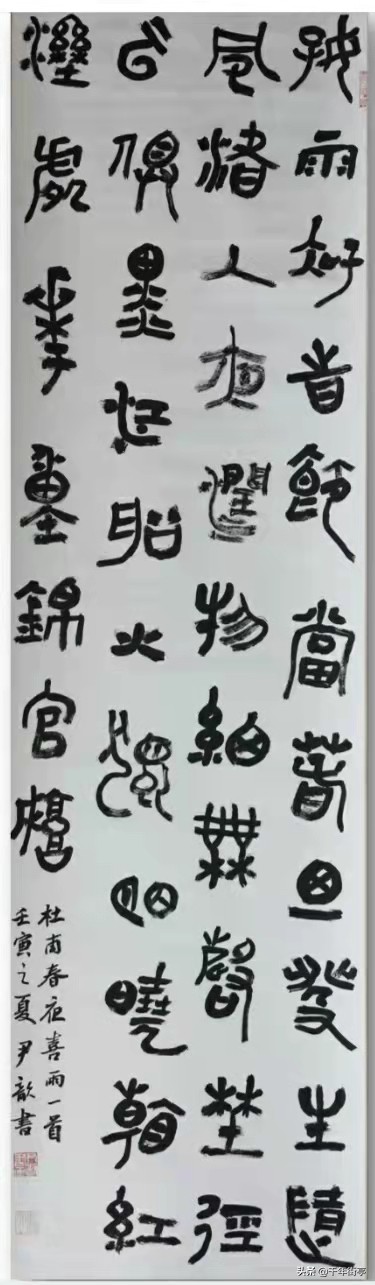 好雨知時節當春乃發生隨
風潛入夜潤物細無聲埜徑
云俱黑江船火獨明曉看紅
濕處華重錦官城
杜甫春夜喜雨一首
壬寅之夏尹歆書
头条 @千年街亭